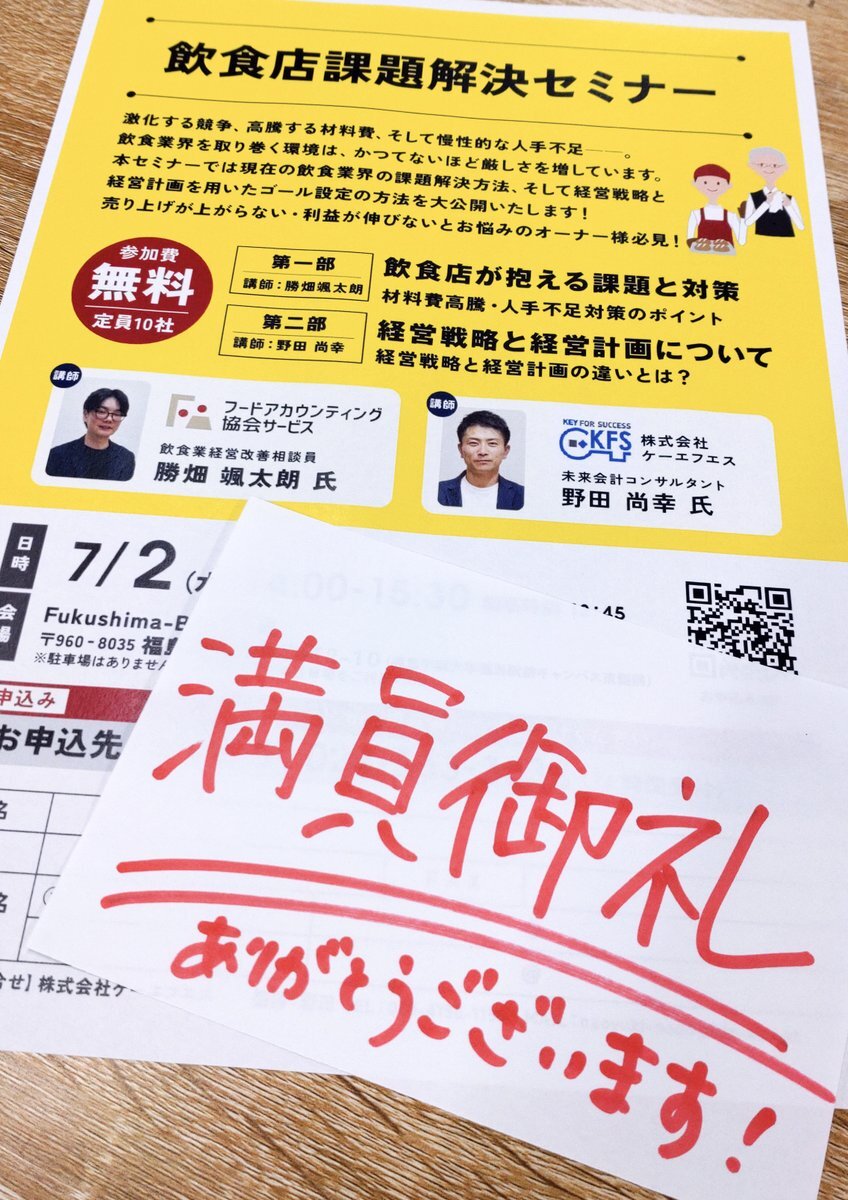 飲食店課題解決セミナー
激化する競争、高騰する材料費、そして慢性的な人手不足――。
飲食業界を取り巻く環境は、かつてないほど厳しさを増しています。
本セミナーでは現在の飲食業界の課題解決方法、そして経営戦略と
経営計画を用いたゴール設定の方法を大公開いたします！
売り上げが上がらない・利益が伸びないとお悩みのオーナー様必見！
参加費
無料
定員10社
第一部
講師：勝畑颯太朗
飲食店が抱える課題と対策
材料費高騰・人手不足対策のポイント
第二部
講師：野田 尚幸
経営戦略と経営計画について
経営戦略と経営計画の違いとは？
講師
フードアカウンティング
協会サービス
飲食業経営改善相談員
勝畑 颯太朗 氏
講師
KEY FOR SUCCESS
KFS
株式会社
ケーエフエス
未来会計コンサルタント
野田 尚幸 氏
日時
7/2
:45
会場
Fukushima-B
〒960-8035 福島
※駐車場はありません
申込み
お申込先
名
名
合せ】株式会社ケー
満員御礼
ありがとうございます！